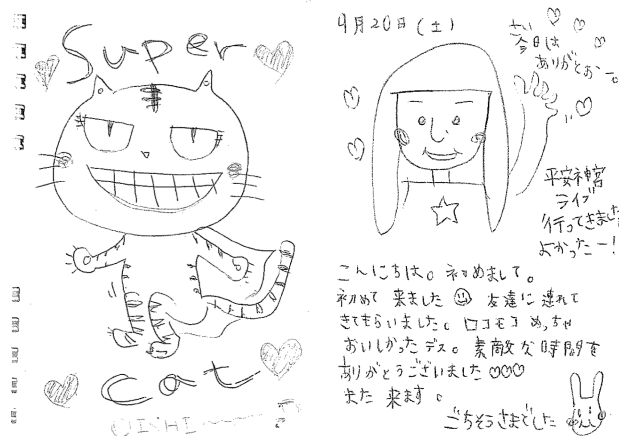 Super
Cat
4月20日(土)
今日は
ありがとおー。
平安神宮
ライブ
行ってきました
よかったー!
こんにちは。初めまして。
初めて来ました 友達に連れて
きてもらいました。ロコモコめっちゃ
おいしかったデス。素敵な時間を
ありがとうございました♡♡♡
また来ます。
ごちそうさまでした